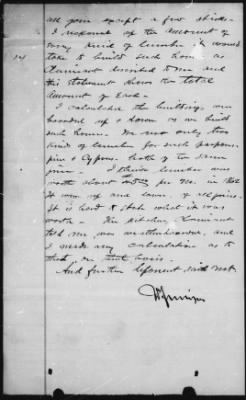 all gone except a few sticks.
I reckoned up the amount of
every kind of lumber it would
take to build such house as
Claimant described to me and
this statement shows the total
amount of each.
I calculated the building was
boarded up & down as we build
such house. We use only two
kind of lumber for such purpose,
pine & Cypress, both of the same
price. I think lumber was
worth about per M. in 1862
It was up and down, of all prices.
It is hard to state what it was
worth. The kitchen, Claimant
told me, was weatherboarded, and
I made my calculation as to
that on that basis.
And further deponent saith not.